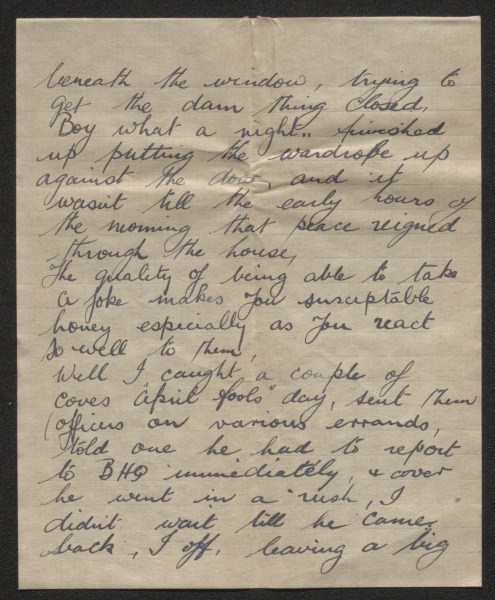 beneath the window, trying to
get the darn thing closed,
Boy what a night.. finished
up putting the wardrobe up
against the door, and it
wasnt till the early hours of
the morning that peace reigned
through the house,
The quality of being able to take
a joke makes you susceptable
honey especially as you react
so well to them,
Well I caught a couple of
coves "April fools" day, sent them
(officers on various errands,
told one he had to report
to BHQ immediately, &
he went in a rush, I
didn't wait till he came
back, I off, leaving a big